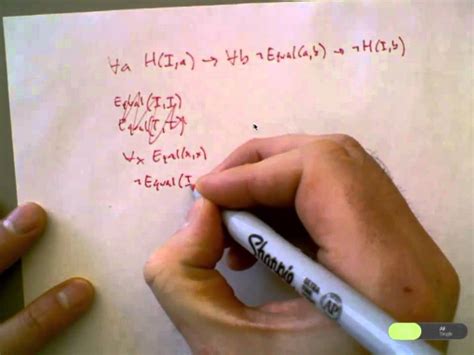 ∀a H(I,a) → ∀b ¬Equal(a,b) → ¬H(I,b)
Equal(I,I)
∀x Equal(x,x)
¬Equal(I,
Sharpie
AP